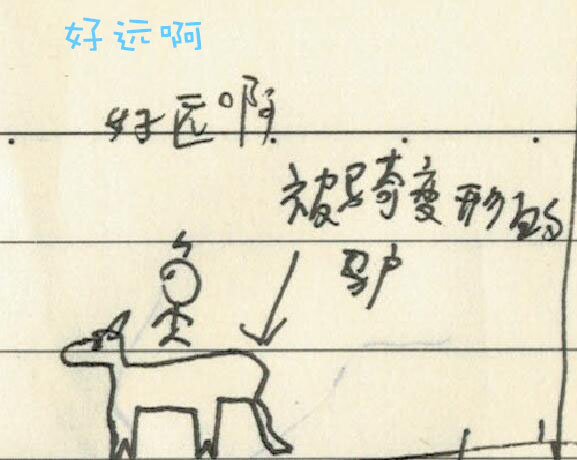 好远啊
好远啊
被骑变形的
驴